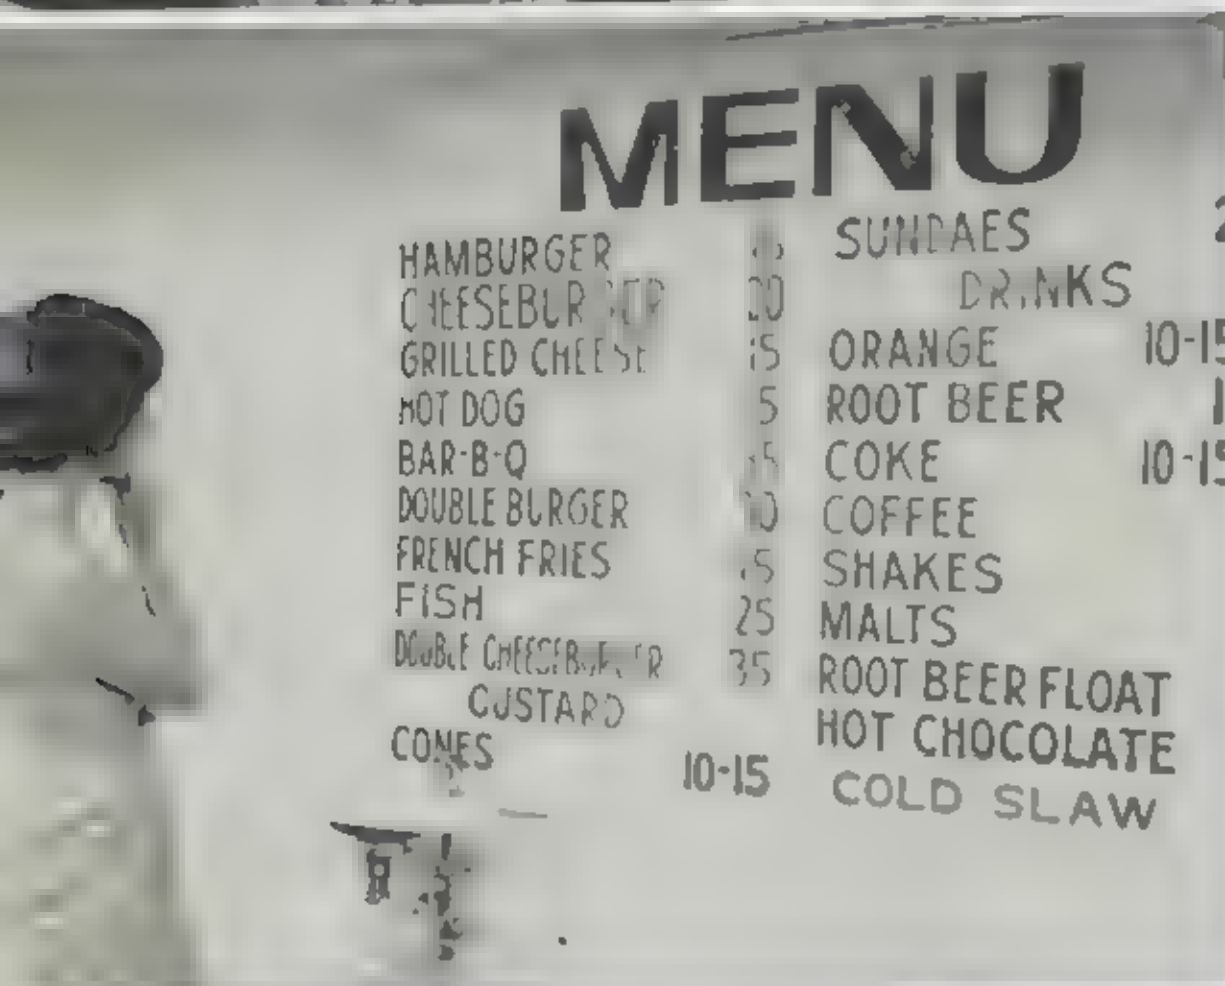 MENU
HAMBURGER
CHEESEBURGER 20
GRILLED CHEESE 15
HOT DOG 5
BAR-B-Q
DOUBLE BURGER
FRENCH FRIES
FISH 25
DOUBLE CHEESEBURGER 35
CUSTARD
CONES 10-15
SUNDAES
DRINKS
ORANGE 10-15
ROOT BEER
COKE 10-15
COFFEE
SHAKES
MALTS
ROOT BEER FLOAT
HOT CHOCOLATE
COLD SLAW